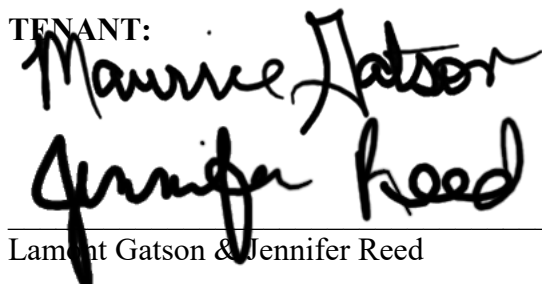 TENANT:
Maurice Gatson
Jennifer Reed
Lamont Gatson & Jennifer Reed